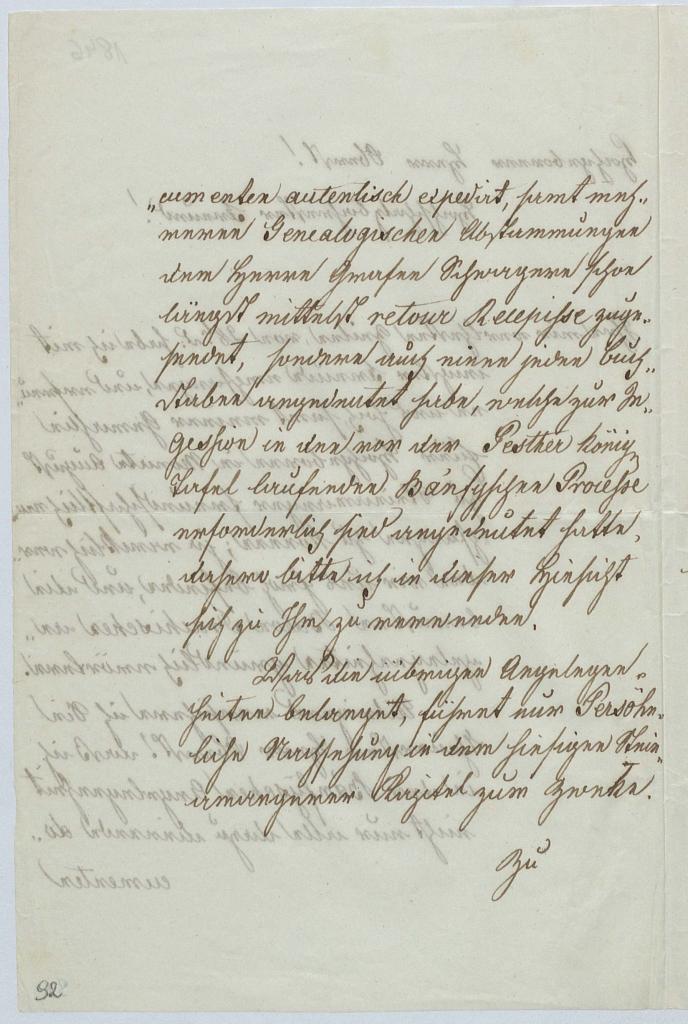 „cumenten autentisch expedirt, samt meh„
reren Genealogischen Abstammungen
dem Herrn Grafen Schwagern schon
längst mittelst retour Recepisse zuge„
sendet, sondern auch einen jeden Buch„
staben angedeutet habe, welche zur In„
gession in den vor der Pesther König
Tafel laufenden Bánfyschen Processe
erforderlich sind angedeutet hatte,
dahero bitte ich in dieser Hinsicht
sich zu Ihm zu verwenden.
Was die übrigen Angelegen„
heiten belanget, führet nur Persöhn„
liche Nachsehung in dem hiesigen Stein„
amangerer Kapitel zum Zweke.
Zu
92